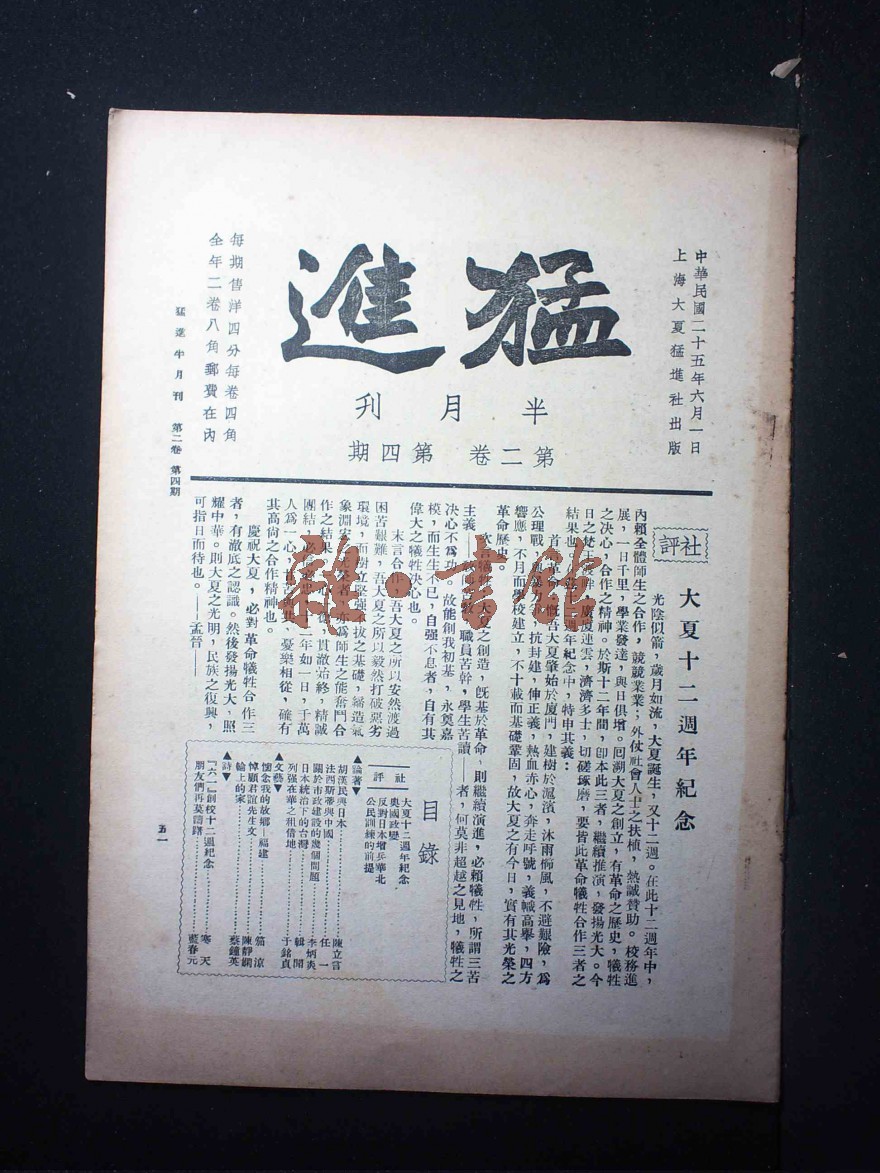 中華民國二十五年六月一日
上海大夏猛進社出版
猛進
半月刊
第二卷 第四期
每期售洋四分每卷四角
全年二卷八角郵費在內
猛進半月刊 第二卷 第四期
社評
大夏十二週年紀念
光陰似箭，歲月如流，大夏誕生，又十二週。在此十二週年中，
內賴全體師生之合作，兢兢業業；外仗社會人士之扶植，熱誠贊助。校務進
展，一日千里，學業發達，與日俱增。囘溯大夏之創立，有革命之歷史，犧牲
之決心，合作之精神。於斯十二年間，卽本此三者，繼續推演，發揚光大。今
日之梵王渡畔，廣廈連雲，濟濟多士，切磋琢磨，要皆此革命犧牲合作三者之
結果也。週年紀念中，特申其義：
首言革命。慨吾大夏肇始於廈門，建樹於滬濱，沐雨櫛風，不避艱險，爲
公理戰，抗封建，伸正義，熱血赤心，奔走呼號，義幟高舉，四方
響應，不月而學校建立，不十載而基礎鞏固，故大夏之有今日，實有其光榮之
革命歷史。
次言犧牲。大夏之創造，旣基於革命，則繼續演進，必賴犧牲，所謂三苦
主義——教，職員苦幹，學生苦讀——者，何莫非超越之見地，犧牲之
決心不爲功。故能創我初基，永奠嘉
模，而生生不已，自强不息者，自有其
偉大之犧牲決心也。
末言合作。吾大夏之所以安然渡過
困苦艱難，吾大夏之所以毅然打破惡劣
環境，而樹立堅强不拔之基礎，締造氣
象淵宏之者，亦爲師生之能奮鬥合
作之結果。貫澈始終，精誠
團結，必二年如一日，千萬
人爲一心，憂樂相從，確有
其高尚之合作精神也。
慶祝大夏，必對革命犧牲合作三
者，有澈底之認識。然後發揚光大，照
耀中華。則大夏之光明，民族之復興，
可指日而待也。——孟晉——
目錄
社評
大夏十二週年紀念
奧國政變
反對日本增兵華北
公民訓練的前提
▲論著▼
胡漢民與日本…………陳立言
法西斯蒂與中國…………任一
關於市政建設的幾個問題…………李炳炎
日本統治下的台灣…………輯閒
列强在華之租借地…………于銘貞
▲文藝▼
懷念我的故鄉—福建…………笳涼
悼顧君誼先生文…………陳靜綱
輪上的家…………蔡鐘英
▲詩▼
『六一』創校十二週紀念…………寒天
朋友們再莫躊躇…………藍春元
五一
雜·書館